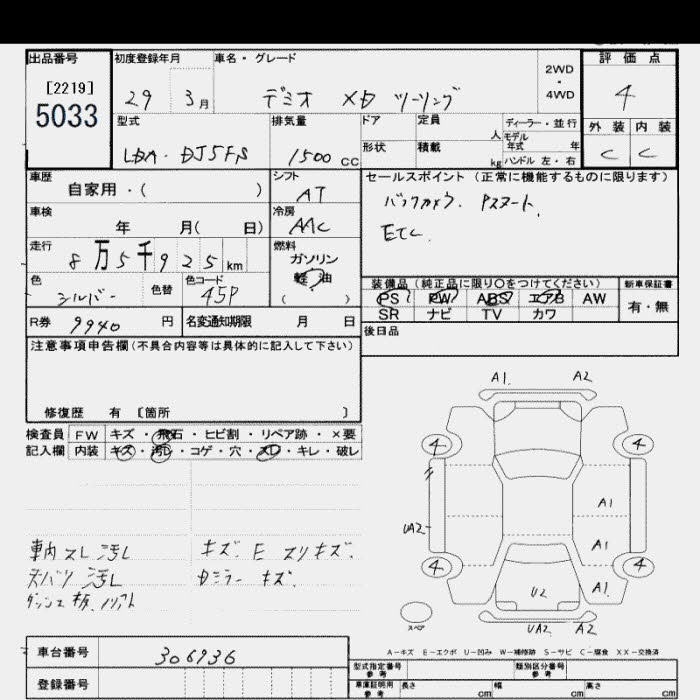 出品番号 初度登録年月 車名・グレード 評価点
[2219]
5033
29 3月 デミオ XD ツーリング 2WD・4WD 4
型式 排気量 ドア 定員 人 ディーラー・並行 外装 内装
モデル年式 年
LDA-DJ5FS 1500 CC 形状 積載 kg ハンドル 左・右 C C
車歴 シフト セールスポイント (正常に機能するものに限ります)
自家用・( ) AT バックカメラ. Pスタート.
車検 冷房 ETC
年 月( 日) AAC
走行 燃料
8万5千925km ガソリン
色 色替 色コード 軽油 装備品 (純正品に限り○をつけてください) 新車保証書
シルバー 45P ( ) PS PW ABS エアB AW 有・無
SR ナビ TV カワ
R券 9940 円 名変通知期限 月 日 後日品
注意事項申告欄(不具合内容等は具体的に記入して下さい)
修復歴 有 〔箇所 〕
検査員 FW キズ・飛石・ヒビ割・リペア跡・×要
記入欄 内装 キズ・汚レ・コゲ・穴・スレ・キレ・破レ
A1. A2
4 4
A1
UA2
A1
4 4
A1
U2
スペア UA2 A2
車内スレ汚レ キズ. E スリキズ.
天バリ 汚レ Dミラー キズ.
A-キズ E-エクボ U-凹み W-補修跡 S-サビ C-腐食 XX-交換済
車台番号 306936
登録番号
型式指定番号 参考 類別区分番号 参考
車庫証明用 参考 長さ cm 幅 cm 高さ cm